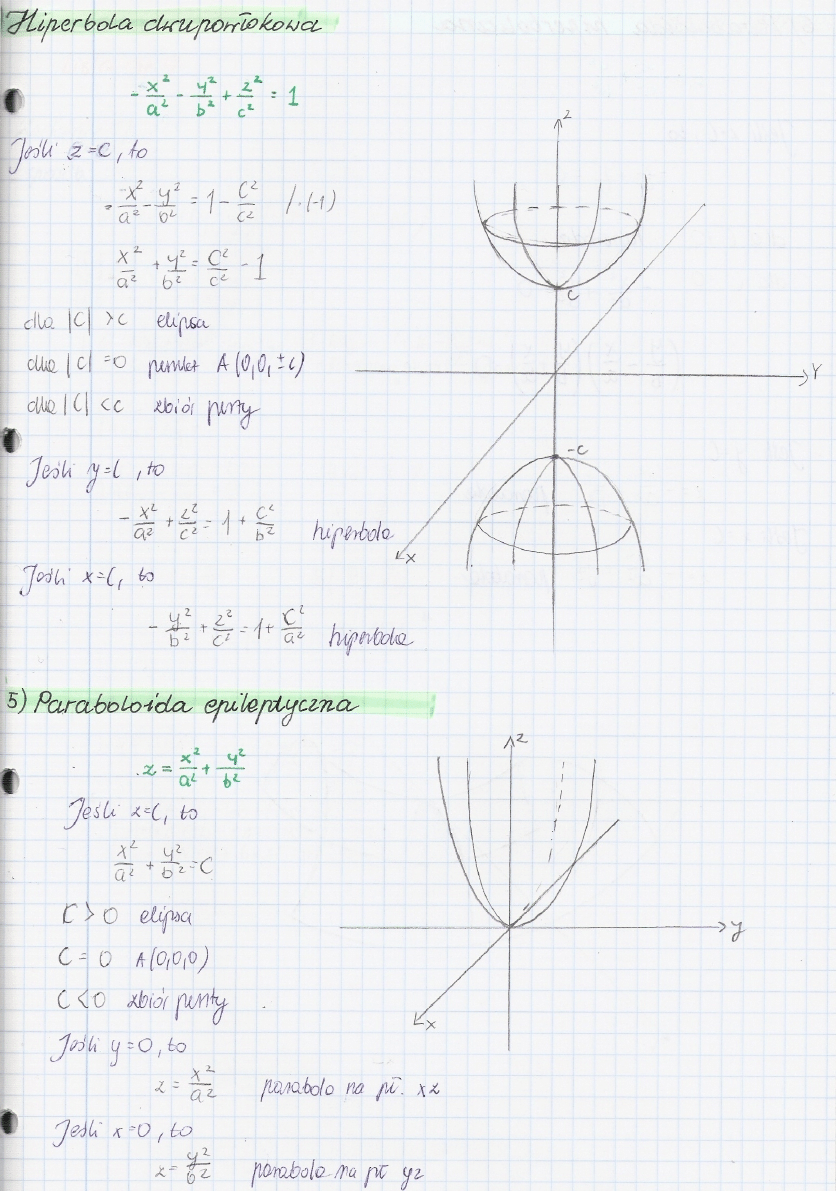 Hiperbola dwupowłokowa
-x²/a² - y²/b² + z²/c² = 1
Jeśli z=C, to
-x²/a² - y²/b² = 1 - C²/c² /·(-1)
x²/a² + y²/b² = C²/c² - 1
dla |C| > c elipsa
dla |C| = 0 punkt A(0,0,±c)
dla |C| < c zbiór pusty
Jeśli y=C, to
-x²/a² + z²/c² = 1 + C²/b² hiperbola
Jeśli x=C, to
-y²/b² + z²/c² = 1 + C²/a² hiperbola
z
c
Y
-c
x
5) Paraboloida epileptyczna
z = x²/a² + y²/b²
Jeśli z=C, to
x²/a² + y²/b² = C
C > 0 elipsa
C = 0 A(0,0,0)
C < 0 zbiór pusty
Jeśli y=0, to
z = x²/a² parabola na pł. xz
Jeśli x=0, to
z = y²/b² parabola na pł yz
z
y
x